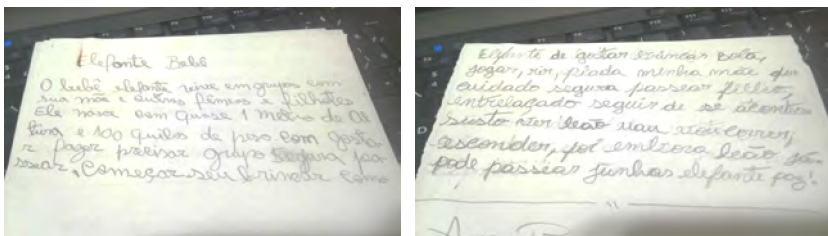 Elefante Bebê
O bebê elefante vive em grupos com
sua mãe e outras fêmeas e filhotes
Ele nasce com quase 1 metro de al
tura e 100 quilos de peso com gosta
r fazer precisar grupo segura pas
sear, começar seu brincar como
Elefante de gostar brincar bola,
jogar, rir, piada minha mãe que
cuidado segura passear filho,
entrelaçado seguir de se acontecer
susto ver leão mau correr,
esconder, foi embora leão já
pode passear junhas elefante faz!